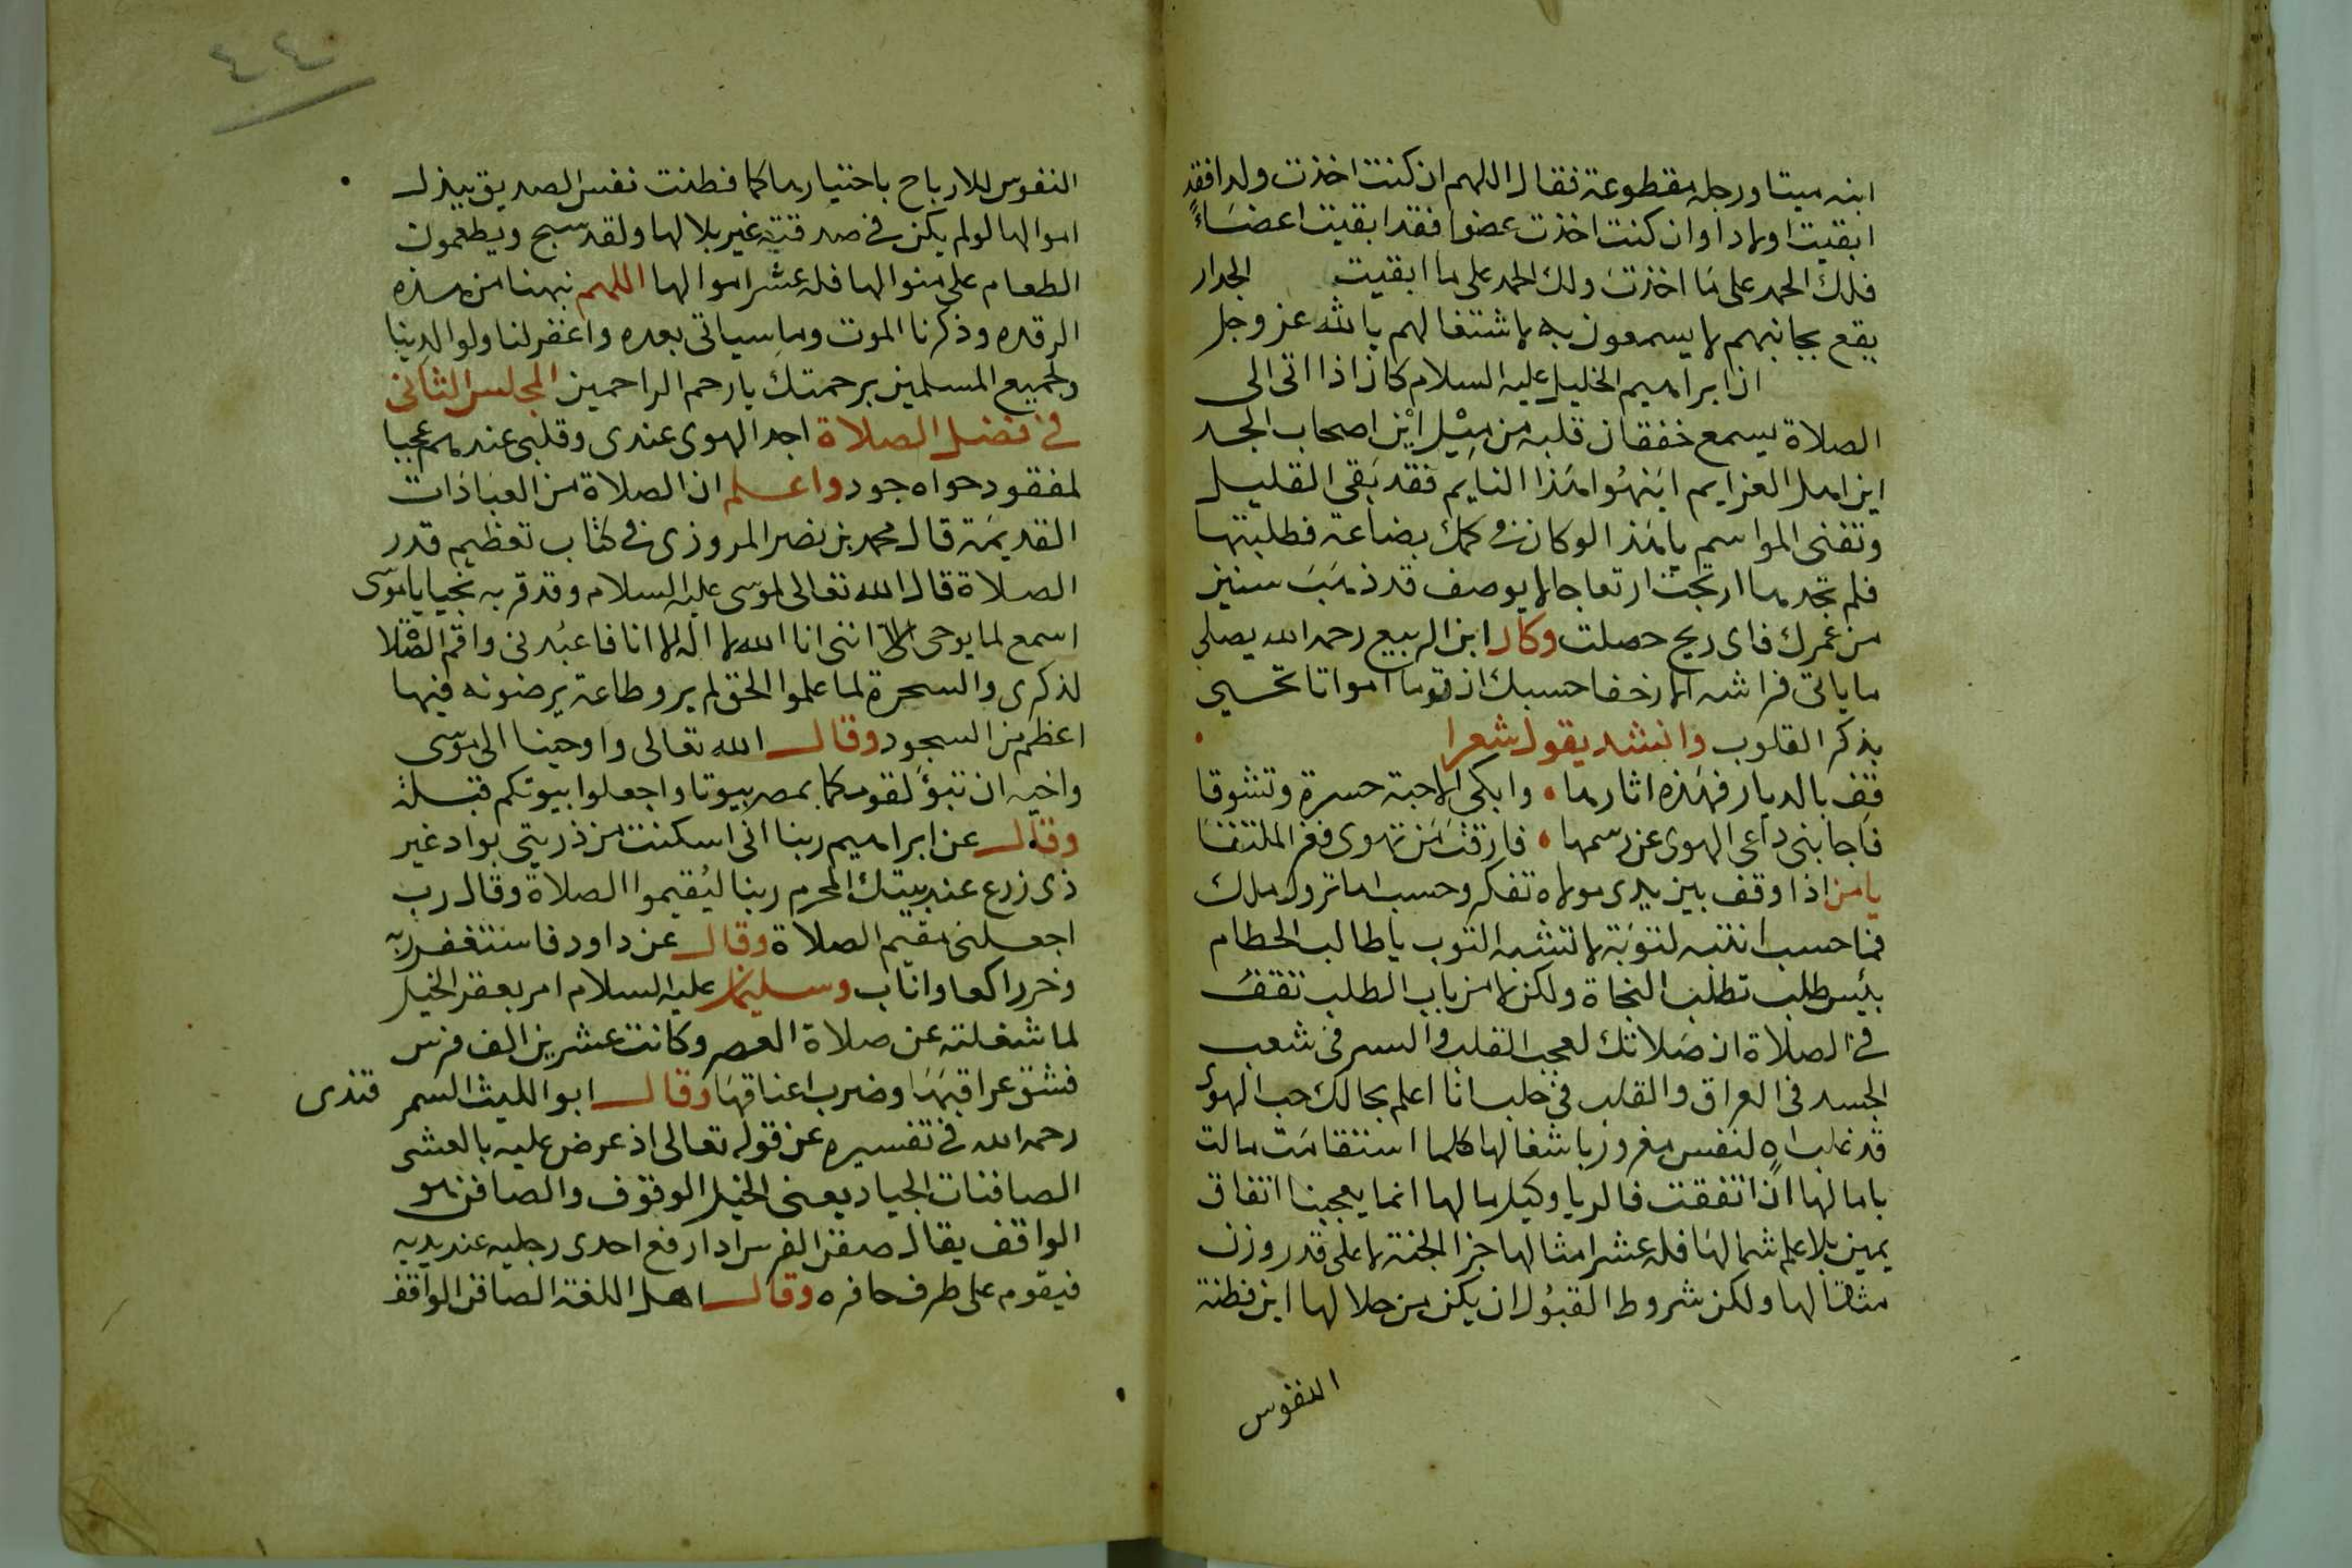 ابنه ميتا ورجله مقطوعة فقال اللهم ان كنت اخذت ولدا فقد
ابقيت اولادا وان كنت اخذت عضوا فقد ابقيت اعضاءً
فلك الحمد على ما اخذت ولك الحمد على ما ابقيت الجدار
يقع بجانبهم لا يسمعون به لاشتغالهم بالله عز وجل
ان ابراهيم الخليل عليه السلام كان اذا اتى الى
الصلاة يسمع خفقان قلبه من ميل اين اصحاب الجد
اين اهل العزايم انتبهوا هذا النايم فقد بقي القليل
وتفنى المواسم يا هذا لو كان في كمك بضاعة فطلبتها
فلم تجدها ارتجت ارتعاجا لا يوصف قد ذهبت سنين
من عمرك فاى ربح حصلت وكان ابن الربيع رحمه الله يصلي
ما ياتى فراشه الا زحفا حسبك ان قوما امواتا تحيي
بذكر القلوب وانشد يقول شعرا
قف بالديار فهذه اثارها وابكي الاحبة حسرة وتشوقا
فاجابنى داعى الهوى عن رسمها فارقت من تهوى فعز الملتقا
يا من اذا وقف بين يدى مولاه تفكر وحسب اما تروك ملك
فما حسب انتبه لتوبة لا تشبه التوب يا طالب الحطام
بئيس طلب تطلب النجاة ولكن لا من باب الطلب تقف
في الصلاة ان صلاتك لعجب القلب والسر فى شعب
الجسد فى العراق والقلب فى حلب انا اعلم بحالك حب الهوى
قد غلب اه لنفس مغرور باشغالها كلما استقامت مالت
باما لها ان اتفقت فالريا وكيل ما لها انما يعجبنا اتفاق
يمين بلا علم شمالها فله عشر امثالها جزا الجنة لا على قدر وزن
مثقالها ولكن شروط القبول ان يكن من حلالها اين فطنة
النفوس
٤٤
النفوس للارباح باختيارها كما فطنت نفس الصديق ببذل
اموالها لو لم يكن في صدقته غير بلالها ولقد سبح ويطعمون
الطعام على منوالها فله عشر اموالها اللهم نبهنا من هذه
الرقده وذكرنا الموت وما سياتى بعده واغفر لنا ولوالدينا
ولجميع المسلمين برحمتك يا رحم الراحمين المجلس الثانى
في فضل الصلاة اجد الهوى عندى وقلبى عندهم عجبا
لمفقود حواه جود واعلم ان الصلاة من العبادات
القديمة قال محمد بن نصر المروزى في كتاب تعظيم قدر
الصلاة قال الله تعالى لموسى عليه السلام وقد قربه نجيا يا موسى
اسمع لما يوحى الى اننى انا الله لا اله الا انا فاعبدنى واقم الصلا
لذكرى والسحرة لما علموا الحق لم يروطاعة يرضونه فيها
اعظم من السجود وقال الله تعالى واوحينا الى موسى
واخيه ان تبوؤ لقومكما بمصر بيوتا واجعلوا بيوتكم قبلة
وقال عن ابراهيم ربنا انى اسكنت من ذريتى بواد غير
ذى زرع عند بيتك المحرم ربنا ليقيموا الصلاة وقال رب
اجعلنى مقيم الصلاة وقال عن داود فاستغفر ربه
وخر راكعا واناب وسليمان عليه السلام امر بعقر الخيل
لما شغلته عن صلاة العصر وكانت عشرين الف فرس
فشق عراقبها وضرب اعناقها وقال ابو الليث السمر قندى
رحمه الله في تفسيره عن قوله تعالى اذ عرض عليه بالعشى
الصافنات الجياد يعنى الخيل الوقوف والصافن هو
الواقف يقال صفن الفرس اذا رفع احدى رجليه عند يديه
فيقوم على طرف حافره وقال اهل اللغة الصافن الواقف